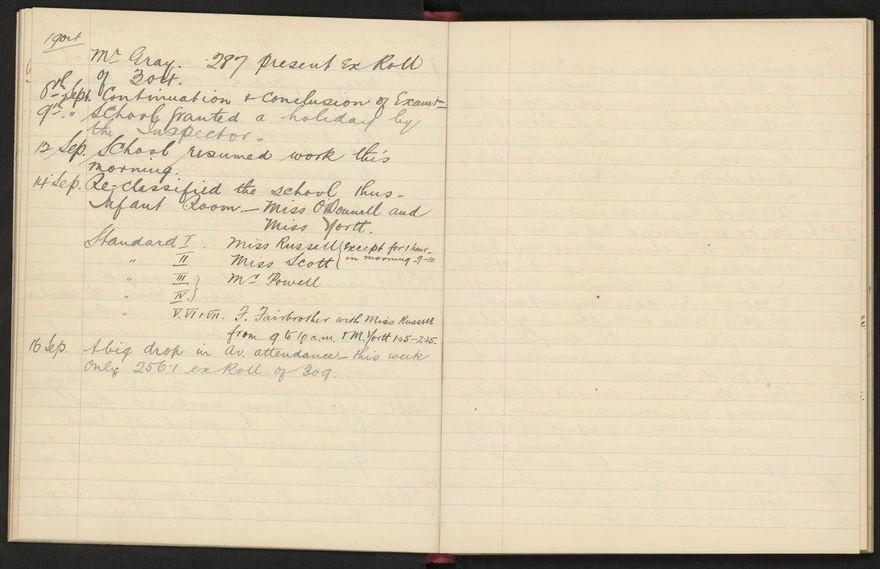 Mr Gray. 287 present Ex Roll
of
8th Sept. Continuation & Conclusion of Examt
9th " School granted a holiday by
the Inspector.
12 Sep. School resumed work this
morning.
14 Sep. Re-classified the school thus -
Infant Room - Miss O'Donnell and
Miss Yortt.
Standard I. Miss Russell (except for 1 hour
" II Miss Scott in morning 9-10
" III } Mr Powell
" IV. }
" V. VI & VII. F. Fairbrother with Miss Russell
from 9 to 10 a.m. & M. Yortt 1.45-2.45.
16 Sep. A big drop in Av. attendance - this week
Only 256.1 ex Roll of 309.